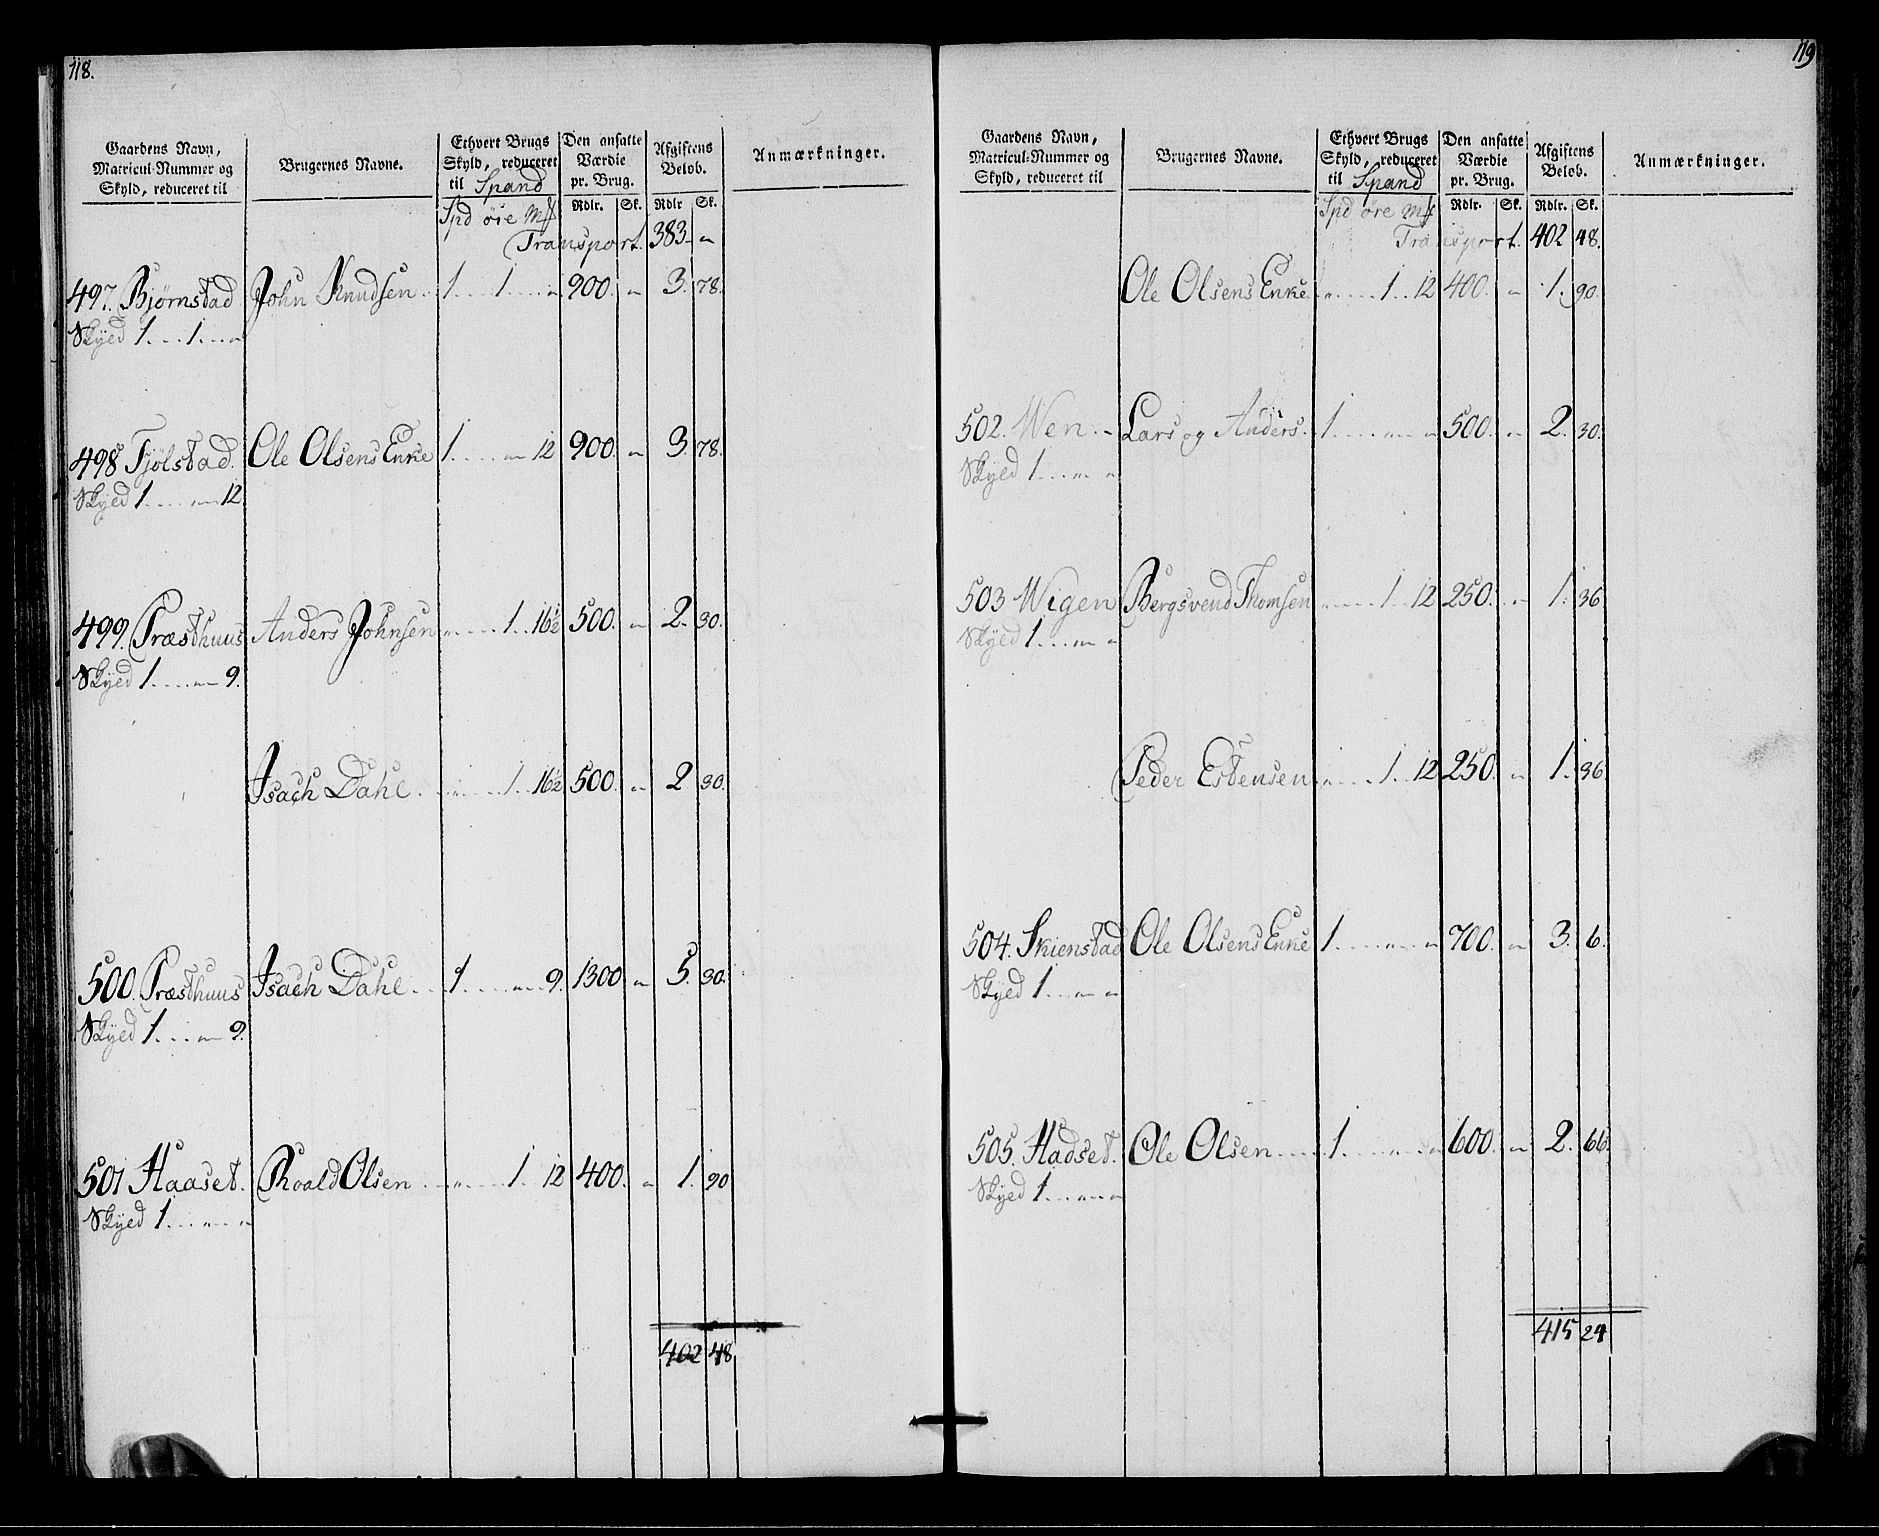 118.
Gaardens Navn, Matricul-Nummer og Skyld, reduceret til
Brugernes Navne.
Ethvert Brugs Skyld, reduceret til Spand
Den ansatte Værdie pr. Brug.
Afgiftens Beløb.
Anmærkninger.
Spd øre Mk Rdlr. Sk. Rdlr Sk.
Transport. 383 „
497. Bjørnstad John Knudsen 1 1 „ 900. „ 3. 78.
Skyld 1 1 „
498 Fjølstad. Ole Olsens Enke 1 „ 12 900. „ 3. 78.
Skyld 1 „ 12
499. Præsthuus Anders Johnsen „ 1 16½ 500. „ 2. 30.
Skyld 1 „ 9.
Isach Dahl „ 1 16½ 500. „ 2 30.
500. Præsthuus Isach Dahl 1 „ 9. 1300 „ 5. 30.
Skyld 1 „ 9.
501 Haaset. Roald Olsen „ 1 12 400. „ 1. 90
Skyld 1 „ „
402 48
119
Gaardens Navn, Matricul-Nummer og Skyld, reduceret til
Brugernes Navne.
Ethvert Brugs Skyld, reduceret til Spand
Den ansatte Værdie pr. Brug.
Afgiftens Beløb.
Anmærkninger.
Spd øre Mk Rdlr. Sk. Rdlr. Sk.
Transport. 402 48.
Ole Olsens Enke „ 1 12 400. „ 1. 90.
502. Wen Lars og Anders. 1 „ „ 500. „ 2. 30.
Skyld 1 „ „
503 Wigen Bergsvend Thomsen „ 1 12 250. „ 1. 36
Skyld 1 „ „
Peder Estensen „ 1 12 250. „ 1. 36
504. Skienstad Ole Olsens Enke 1 „ „ 700. „ 3. 6.
Skyld 1 „ „
505. Hadset. Ole Olsen 1 „ „ 600. „ 2. 66.
Skyld 1 „ „
415 24